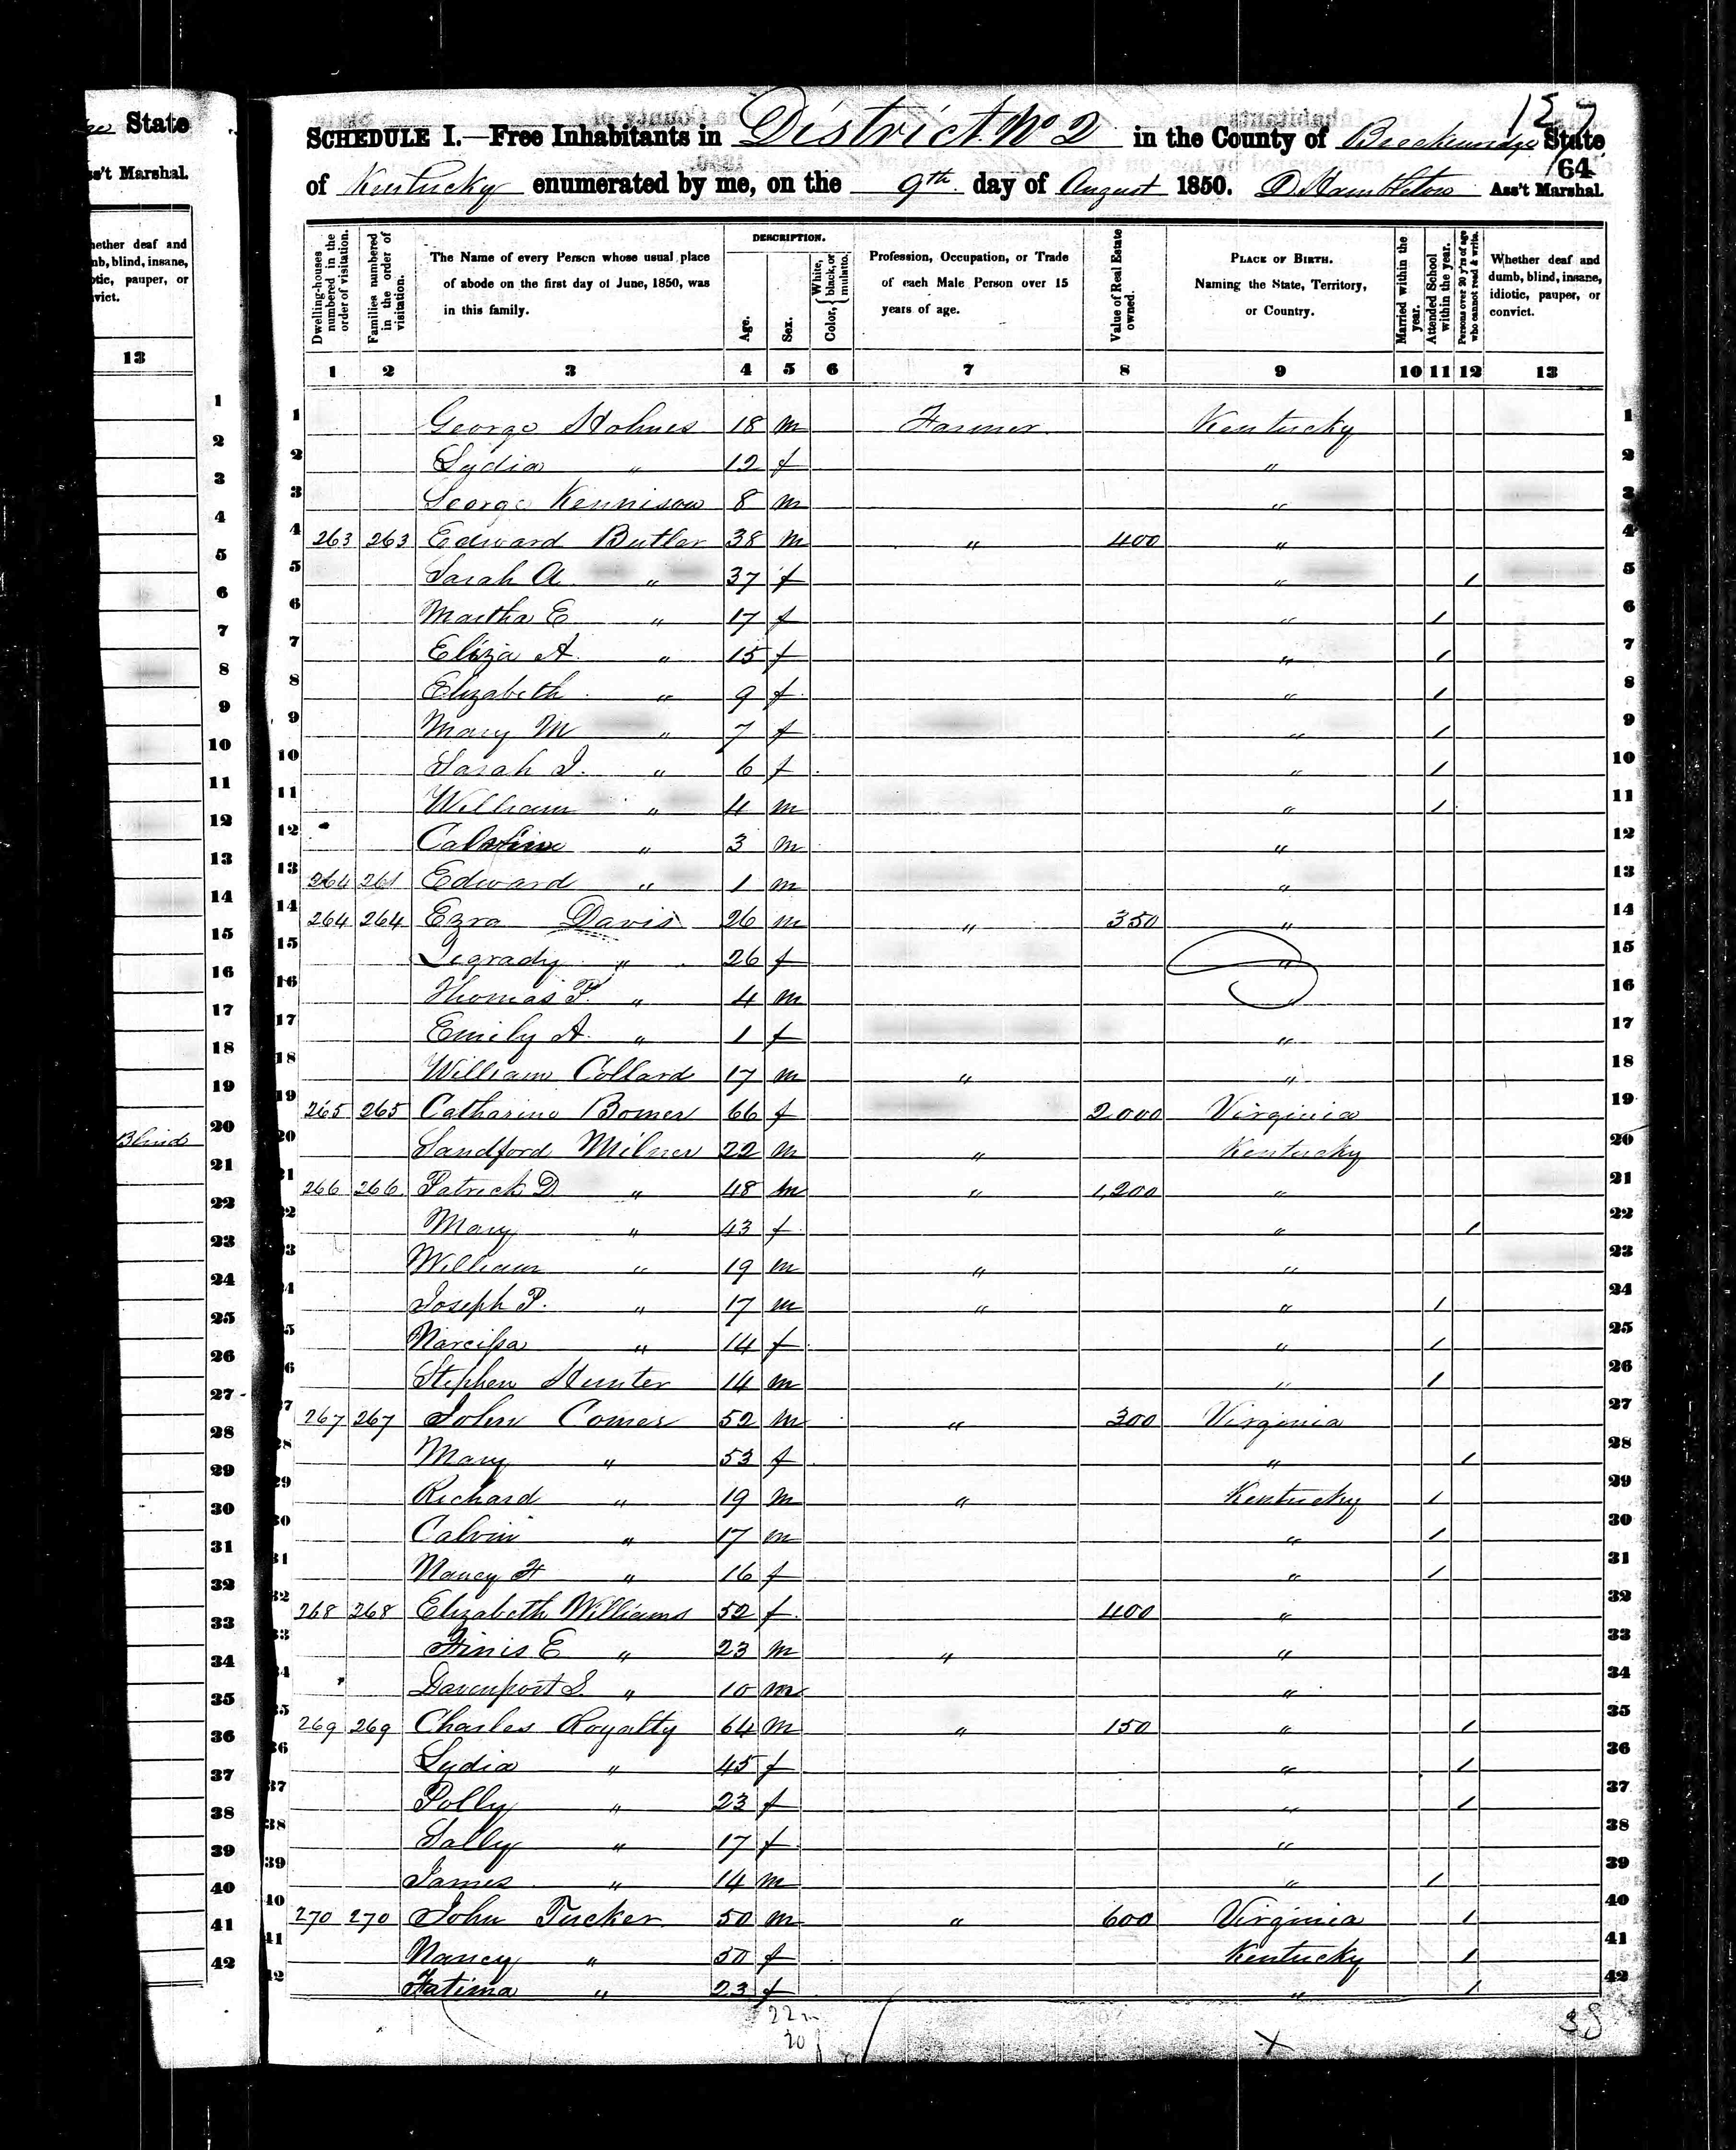 State
Ass't Marshal.
13
Blind
157
SCHEDULE I.—Free Inhabitants in District No 2 in the County of Breckenridge State
64
of Kentucky enumerated by me, on the 9th day of August 1850. D. Hambleton Ass't Marshal.
Dwelling-houses numbered in the order of visitation.
Families numbered in the order of visitation.
The Name of every Person whose usual place of abode on the first day of June, 1850, was in this family.
DESCRIPTION.
Age.
Sex.
Color, { White, black, or mulatto.
Profession, Occupation, or Trade of each Male Person over 15 years of age.
Value of Real Estate owned.
PLACE OF BIRTH. Naming the State, Territory, or Country.
Married within the year.
Attended School within the year.
Persons over 20 y'rs of age who cannot read & write.
Whether deaf and dumb, blind, insane, idiotic, pauper, or convict.
1 2 3 4 5 6 7 8 9 10 11 12 13
1 George Holmes 18 m Farmer Kentucky 1
2 Lydia " 12 f " 2
3 George Kennison 8 m " 3
4 263 263 Edward Butler 38 m " 400 " 4
5 Sarah A " 37 f " / 5
6 Martha E " 17 f " / 6
7 Eliza A. " 15 f " / 7
8 Elizabeth " 9 f " / 8
9 Mary M " 7 f " / 9
10 Sarah J. " 6 f " / 10
11 William " 4 m " / 11
12 " 3 m " 12
13 264 261 Edward " 1 m " 13
14 264 264 Ezra Davis 26 m " 350 " 14
15 Legrady " 26 f " 15
16 Thomas P. " 4 m " 16
17 Emily A. " 1 f " 17
18 William Collard 17 m " " 18
19 265 265 Catharine Bomer 66 f 2,000 Virginia 19
20 Sandford Milner 22 m " Kentucky 20
21 266 266 Patrick D " 48 m " 1,200 " 21
22 Mary " 43 f " / 22
23 William " 19 m " " 23
24 Joseph P. " 17 m " " / 24
25 Narcissa " 14 f " / 25
26 Stephen Hunter 14 m " / 26
27 267 267 John Comer 52 m " 300 Virginia 27
28 Mary " 53 f " / 28
29 Richard " 19 m " Kentucky / 29
30 Calvin " 17 m " / 30
31 Nancy H " 16 f " / 31
32 268 268 Elizabeth Williams 52 f 400 " 32
33 Finis E " 23 m " " 33
34 Davenport S. " 10 m " 34
35 269 269 Charles Royalty 64 m " 150 " / 35
36 Lydia " 45 f " / 36
37 Polly " 23 f " / 37
38 Sally " 17 f " 38
39 James " 14 m " / 39
40 270 270 John Tucker 50 m " 600 Virginia / 40
41 Nancy " 50 f Kentucky / 41
42 Fatima " 23 f " / 42
22 m
20 f
X
38